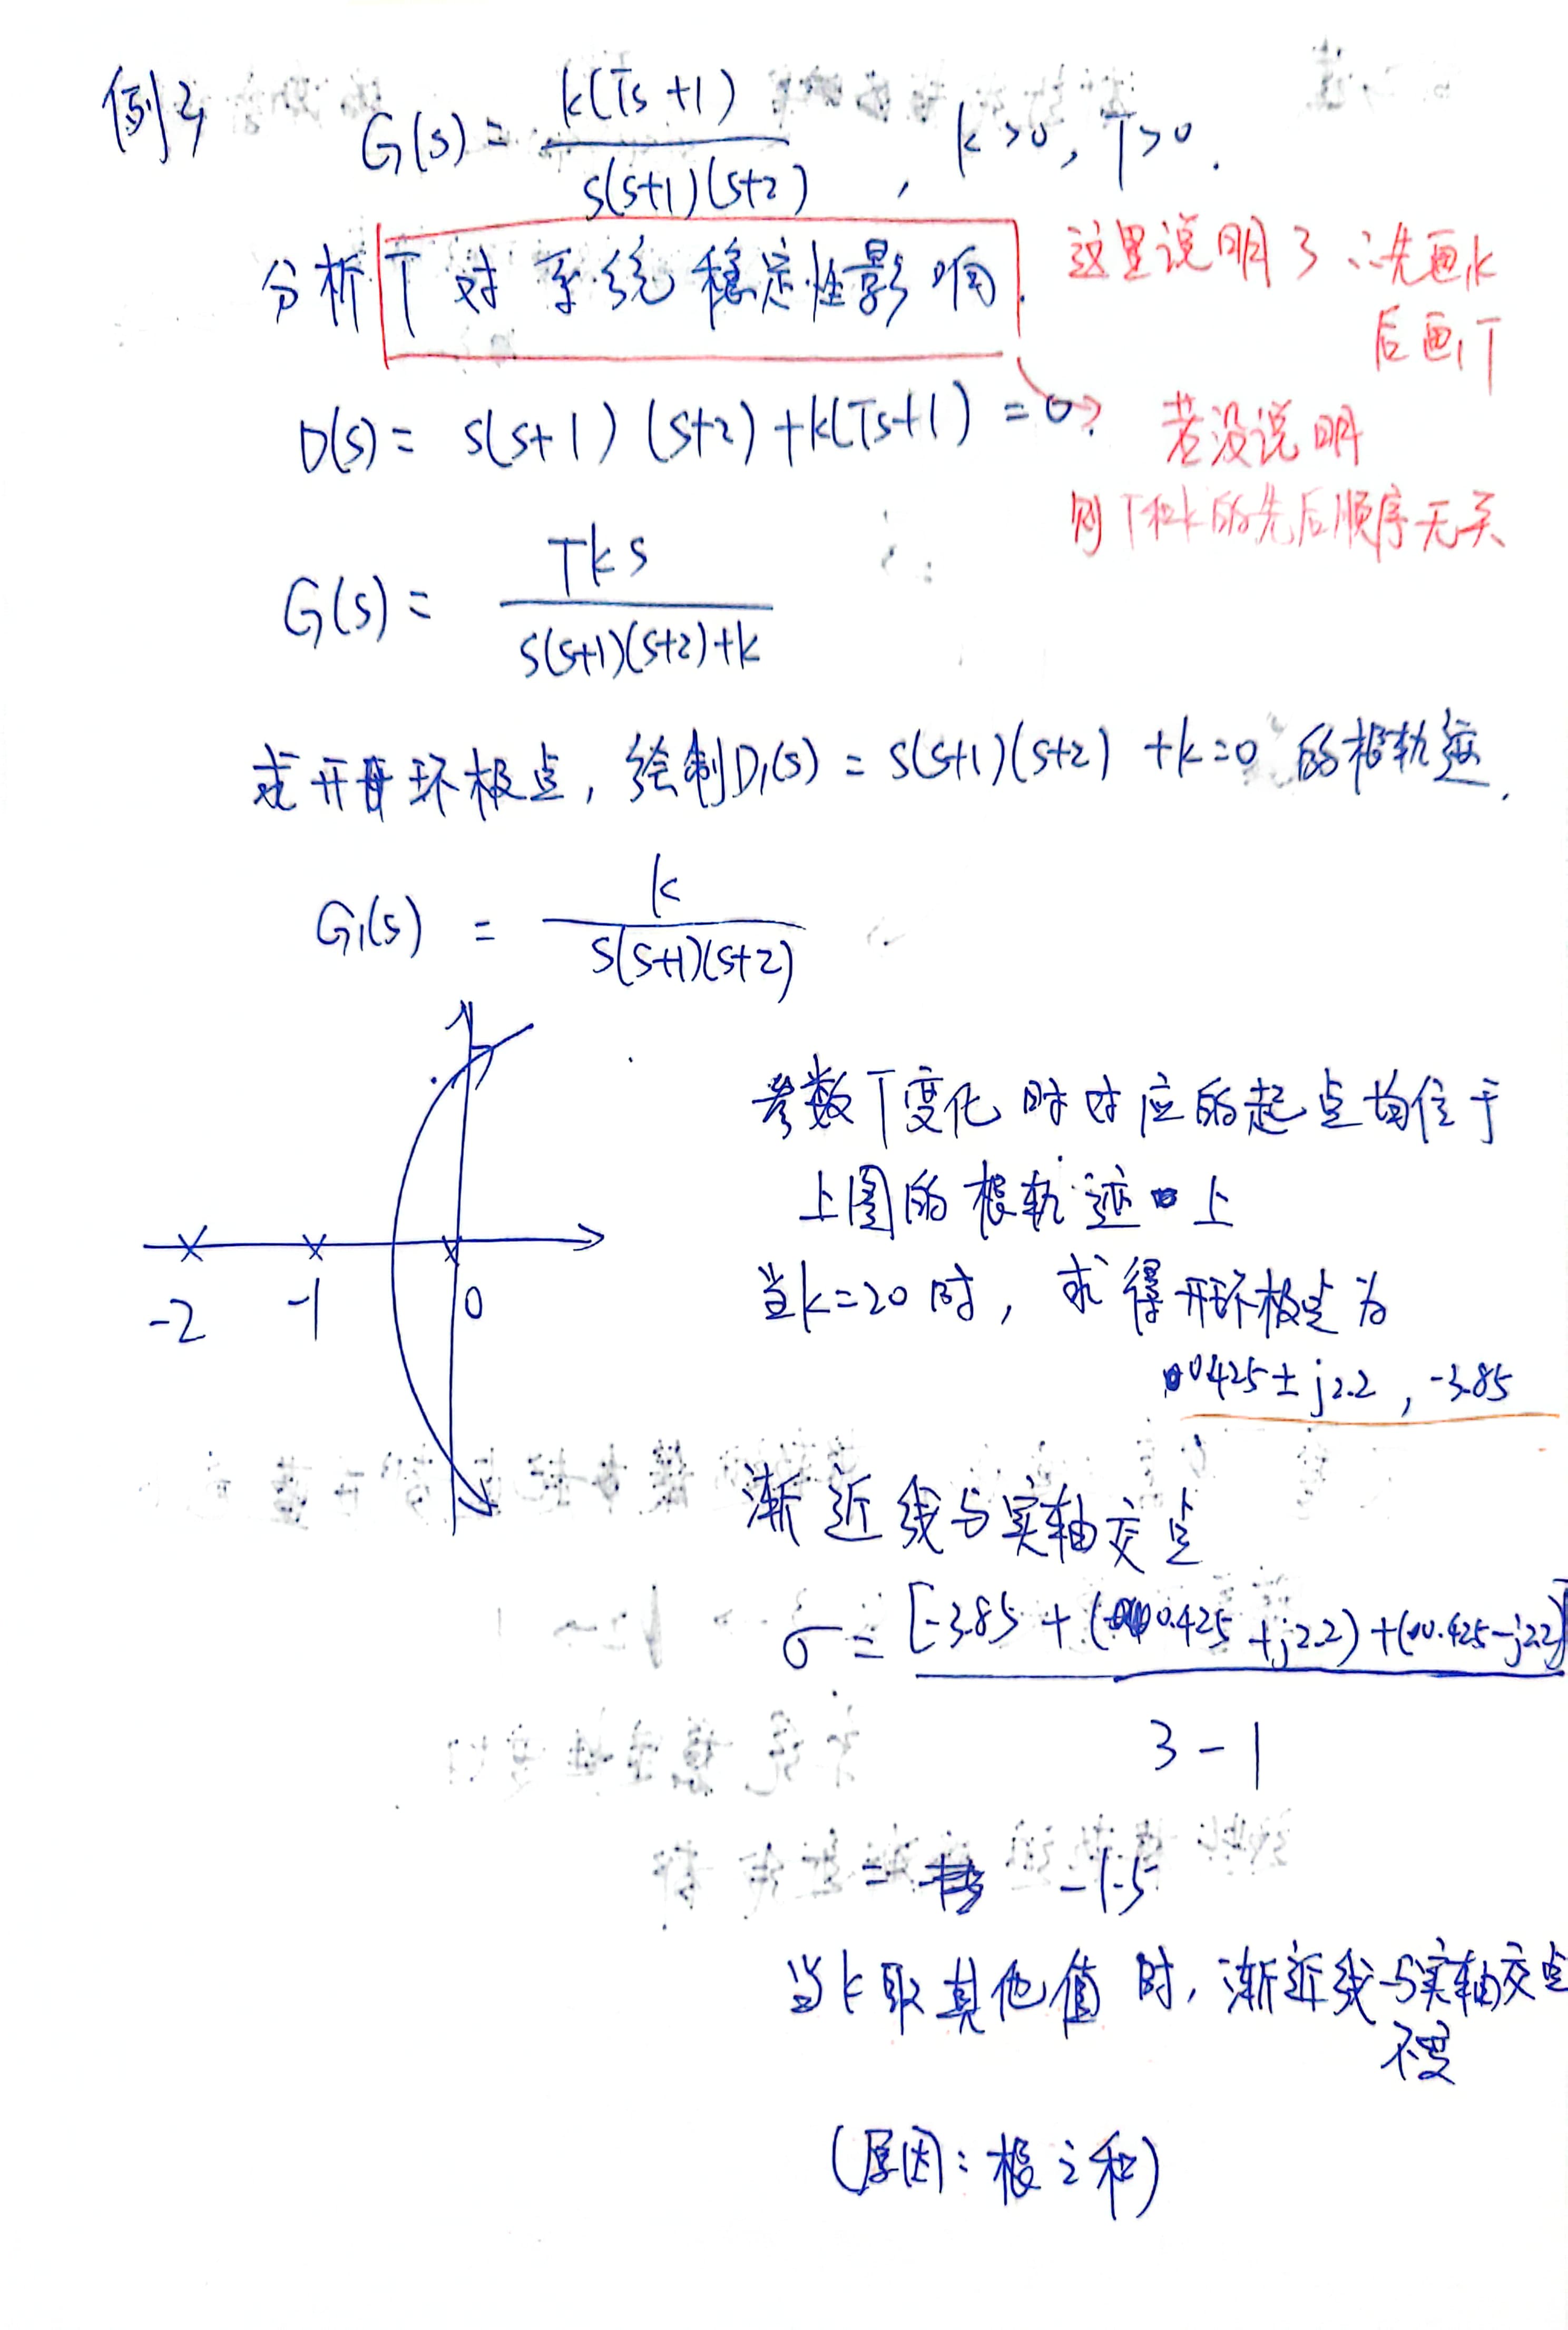 例2 G(s) = k(Ts+1) / s(s+1)(s+2) , k>0, T>0.
分析 T 对系统稳定性影响.
这里说明了:先画k
后画T
D(s) = s(s+1)(s+2)+k(Ts+1) = 0
若没说明
则T和k的先后顺序无关
G(s) = Tks / s(s+1)(s+2)+k
求开环极点, 绘制D₁(s) = s(s+1)(s+2) +k=0 的根轨迹.
G₁(s) = k / s(s+1)(s+2)
-2 -1 0
参数T变化时对应的起点均位于
上图的根轨迹上
当k=20时, 求得开环极点为
0.425±j2.2, -3.85
渐近线与实轴交点
σ = [-3.85 + (0.425+j2.2)+(0.425-j2.2)] / 3-1
= -1.5
当k取其他值时, 渐近线与实轴交点
不变
(原因: 根之和)